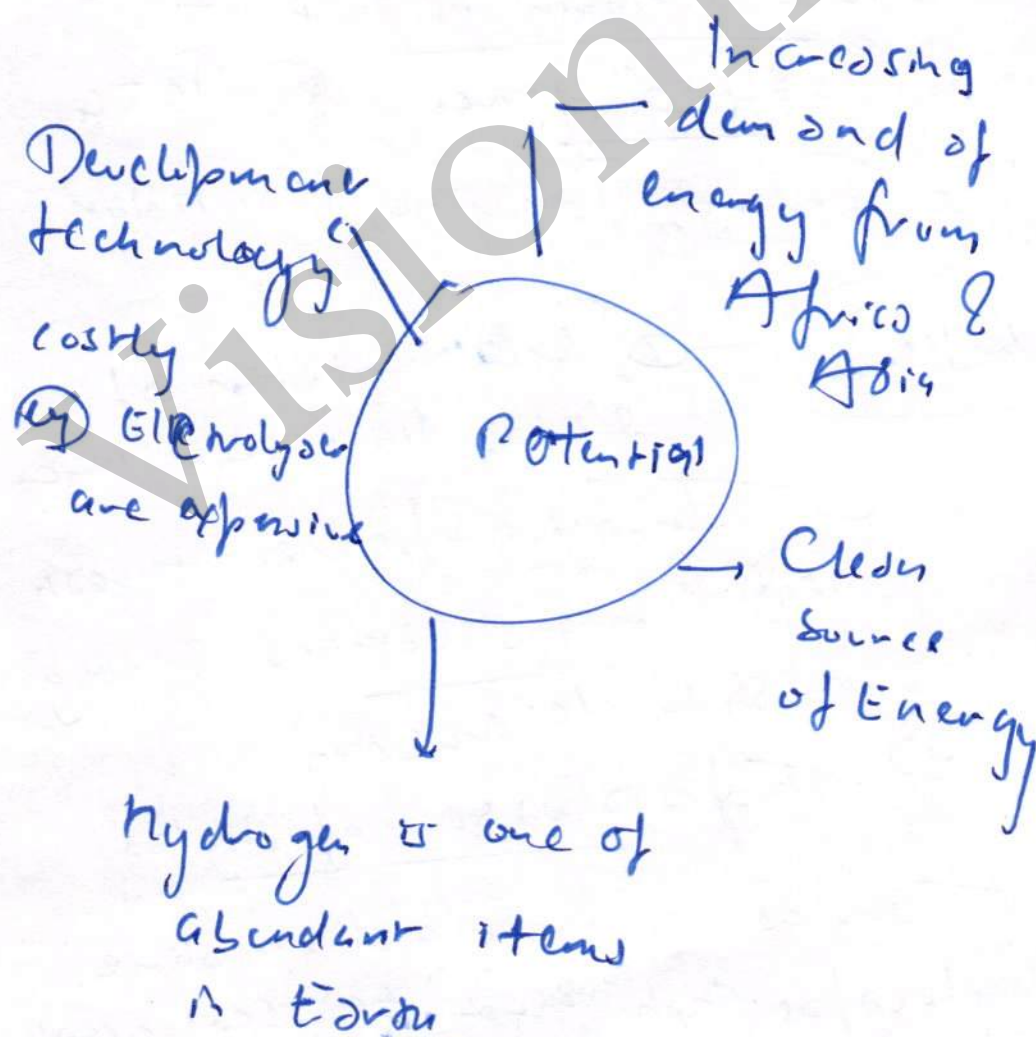 Increasing
demand of
energy from
Africa &
Asia
Development
technology
costly
eg Electrolyser
are expensive
Potential
Clean
source
of Energy
Hydrogen is one of
abundant items
in Earth
Vision